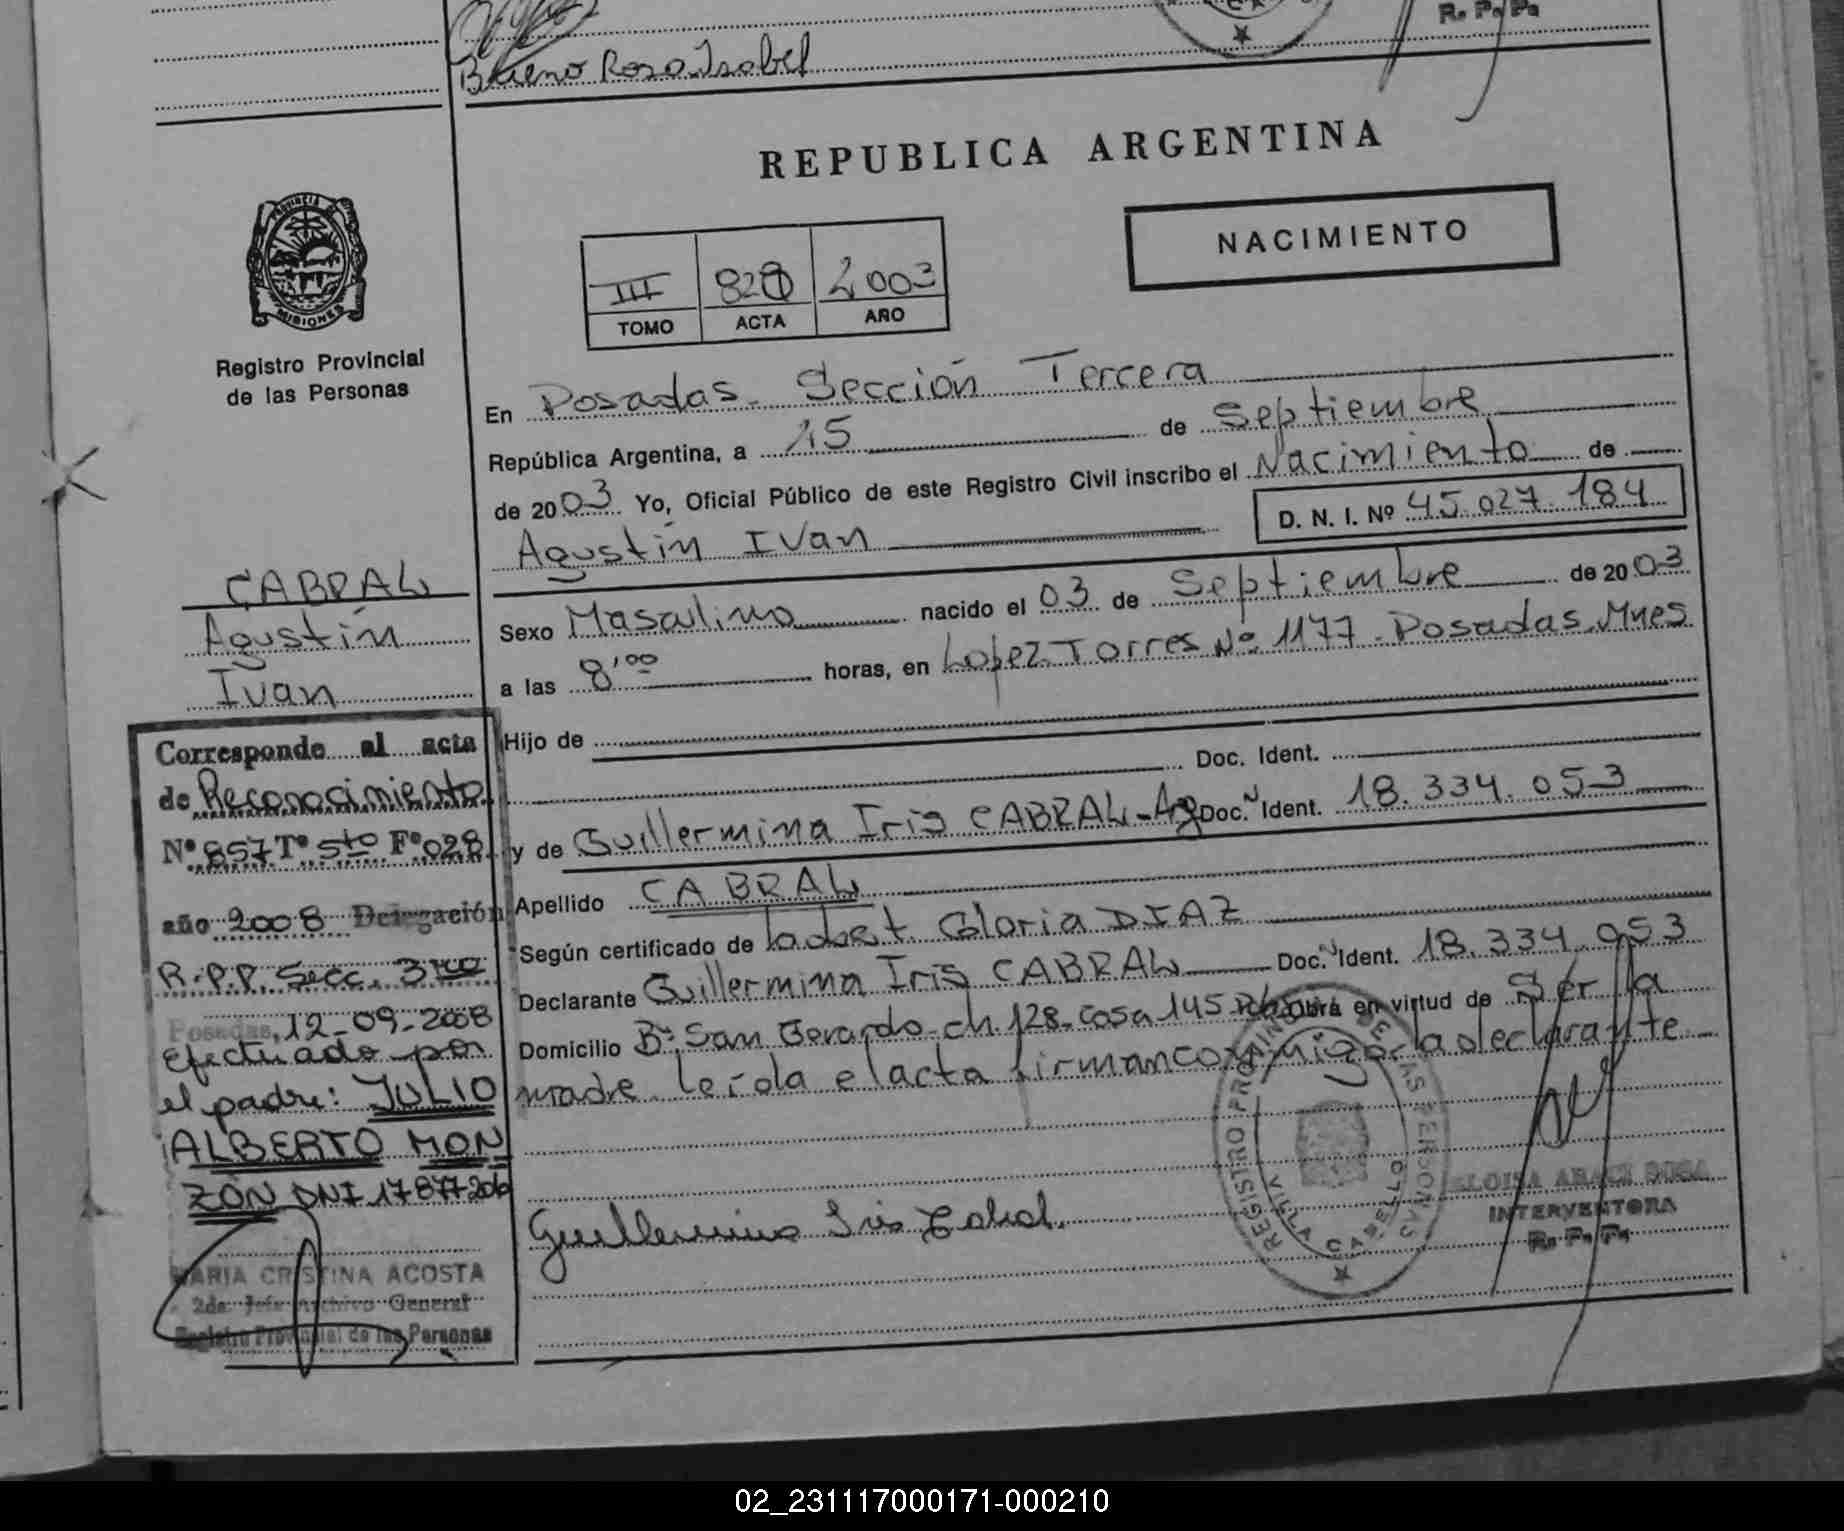 Bueno Rosa Isabel
R. P. P.
REPUBLICA ARGENTINA
NACIMIENTO
III 2003
TOMO ACTA AÑO
PROVINCIA DE
MISIONES
Registro Provincial
de las Personas
CABRAL
Agustín
Ivan
En Posadas. Sección Tercera
República Argentina, a 15 de Septiembre
de 2003 Yo, Oficial Público de este Registro Civil inscribo el Nacimiento de
Agustín Ivan D. N. I. Nº 45.027.184
Sexo Masculino nacido el 03 de Septiembre de 2003
a las 8'00 horas, en Lopez Torres Nº 1177. Posadas. Mnes
Hijo de
Doc. Ident.
y de Guillermina Iris CABRAL - Ag Doc. N Ident. 18.334.053
Apellido CABRAL
Según certificado de Gloria DIAZ
Declarante Guillermina Iris CABRAL Doc. N Ident. 18.334.053
Domicilio Bº San Gerardo. ch. 128. Casa 145 Obra en virtud de Ser la
madre. Leída el acta firman conmigo la declarante
Guillermina Iris Cabral.
REGISTRO PROVINCIAL DE LAS PERSONAS
ELOISA
INTERVENTORA
R. P. P.
Corresponde al acta
de Reconocimiento
Nº 857 Tº 5to Fº 028
año 2008 Delegación
R.P.P. Secc. 3ra
Posadas, 12-09-2008
Efectuado por
el padre: JULIO
ALBERTO MON
ZON DNI 17877206
MARIA CRISTINA ACOSTA
2da. Jefe Archivo General
Registro Provincial de las Personas
02_231117000171-000210